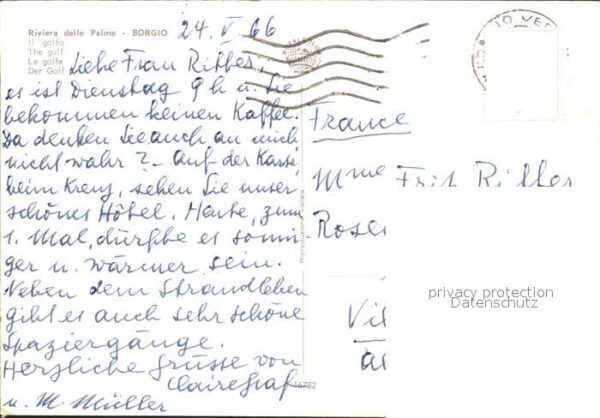 Riviera delle Palme - BORGIO
Il golfo
The gulf
Le golfe
Der Golf
24. V 66
Liebe Frau Ritter,
es ist Dienstag 9 h u. Sie
bekommen keinen Kaffee.
Da denken Sie auch an mich
nicht wahr? - Auf der Karte,
beim Kreuz, sehen Sie unser
schönes Hôtel. Heute, zum
1. Mal, dürfte es sonni-
ger u. wärmer sein.
Neben dem Strandleben
gibt es auch sehr schöne
Spaziergänge.
Herzliche Grüsse von
Claire Graf
u. M. Müller
16762
France
Mme Frit Ritter
Rosen
Vil
privacy protection
Datenschutz